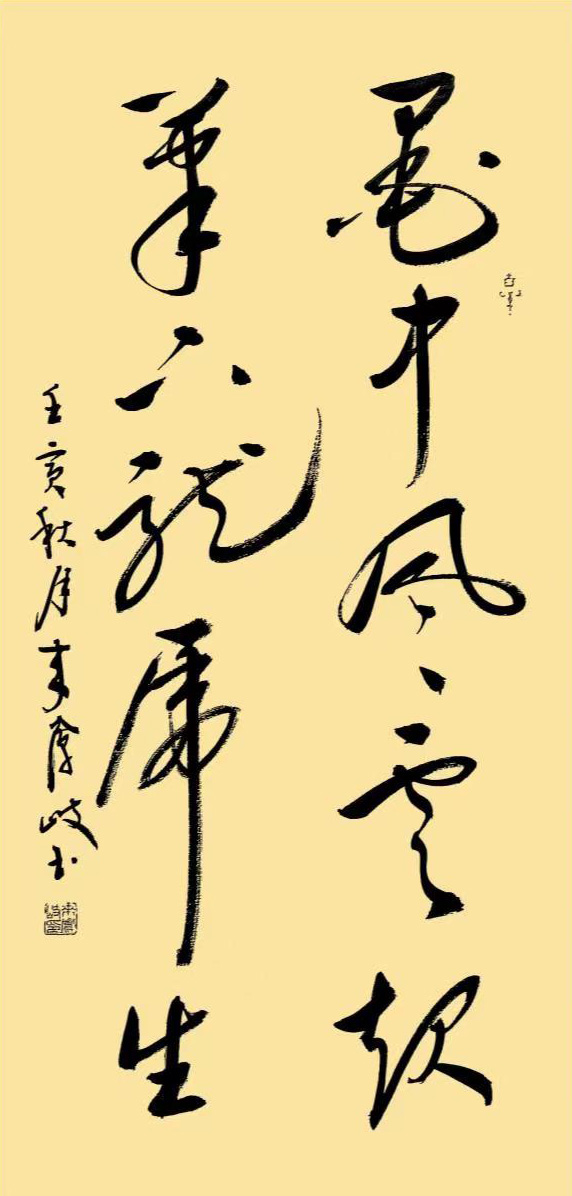 墨中風雲起
筆下龍虎生
壬寅秋月李岐书